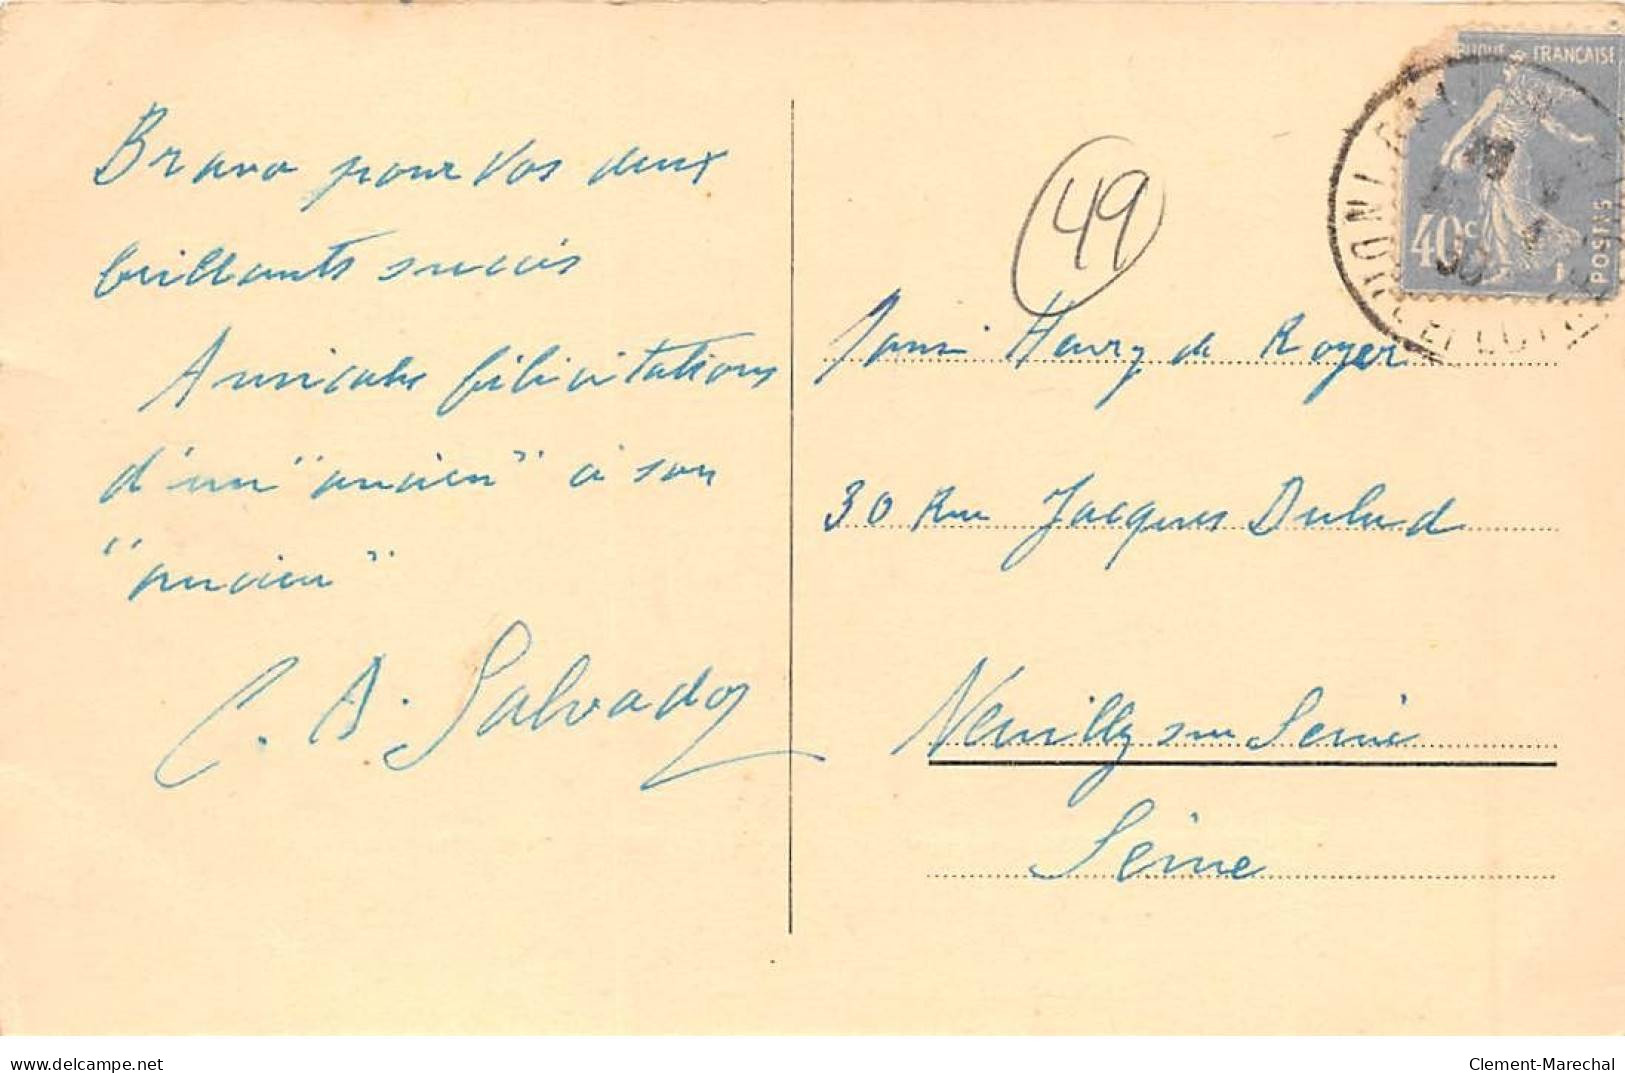 Bravo pour vos deux
brillants succès
Amicales félicitations
d'un "ancien" à son
"ancien"
C. A. Salvador
49
RÉPUBLIQUE FRANÇAISE
40c
POSTES
Henry de Royer
30 Rue Jacques Dulud
Neuilly sur Seine
Seine
delcampe.net
Clement-Marechal